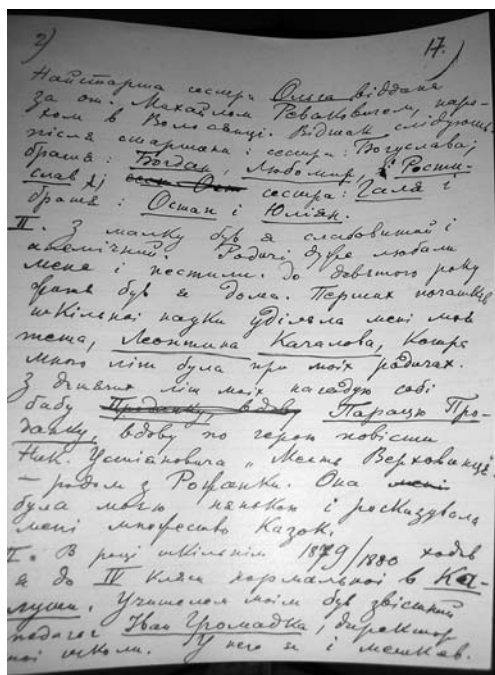 2) 17.)
Найстарша сестра Ольга віддана
за от. Михайлом Реваковичем, паро-
хом в Волосянці. Відтак слідують
після старшини: сестра: Богуслава;
братя: Богдан, Любомир, і Рости-
слав; і сестра: Галя і
братя: Остап і Юліян.
II. З малку був я слабовитий і
анемічний. Родичі дуже любили
мене і пестили. До девятого року
був я дома. Перших початків
шкільної науки уділяла мені моя
тета, Леонтина Качалова, котра
много літ була при моїх родичах.
З дитячих літ моїх нагадую собі
бабу Продашку, вдову Парацю Про-
дашку, вдову по герою повісти
Ник. Устіяновича „Месть Верховинця"
– родом з Рожанки. Она мені
була моєю нянькою і росказувала
мені множество казок.
I. В році шкільнім 1879/1880 ходив
я до IV кляси нормальної в Ка-
луши. Учителем моїм був звістний
педагог Іван Громадка, директор
тої школи. У него я і мешкав.